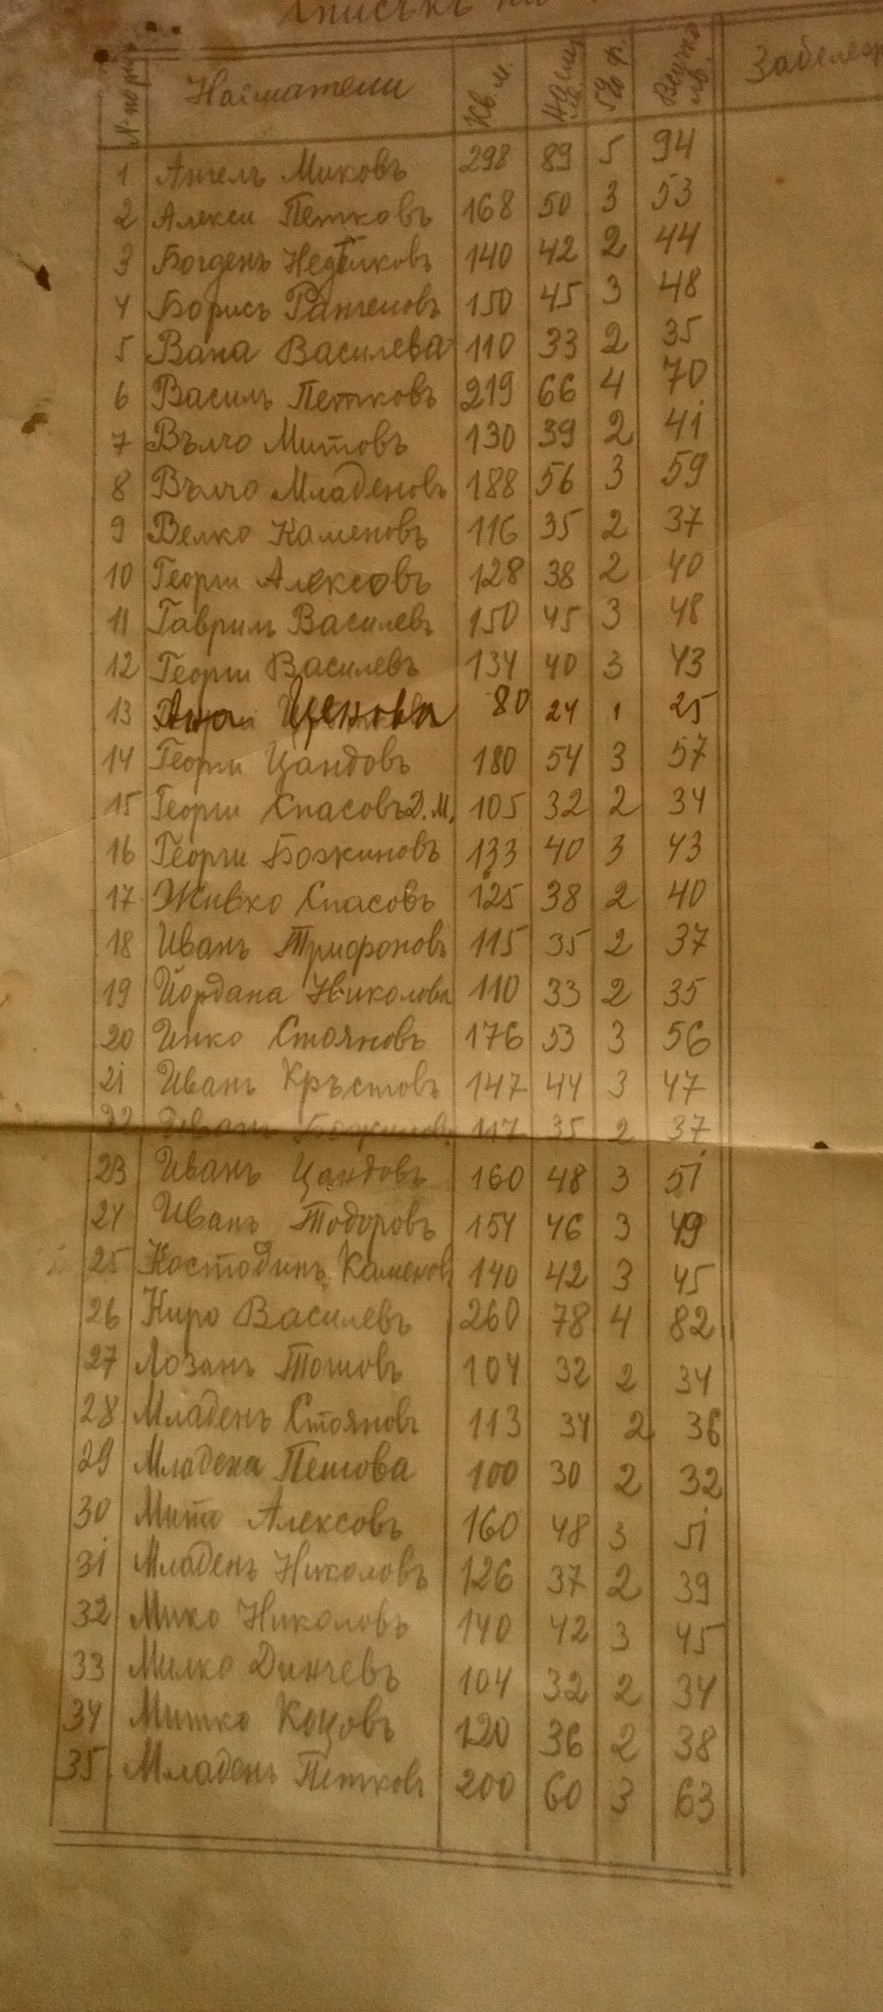 Списъкъ на
№ по ред Наематели Кв. м. Наем лв. 5% ф. Всичко лв. Забележ
1 Ангелъ Миковъ 298 89 5 94
2 Алекси Петковъ 168 50 3 53
3 Богденъ Недѣлковъ 140 42 2 44
4 Борисъ Рангеловъ 150 45 3 48
5 Вана Василева 110 33 2 35
6 Василъ Петковъ 219 66 4 70
7 Вълчо Митовъ 130 39 2 41
8 Вълчо Младеновъ 188 56 3 59
9 Велко Каменовъ 116 35 2 37
10 Георги Алексовъ 128 38 2 40
11 Гаврилъ Василевъ 150 45 3 48
12 Георги Василевъ 134 40 3 43
13 Ана Ценова 80 24 1 25
14 Георги Цандовъ 180 54 3 57
15 Георги Спасовъ Д. М. 105 32 2 34
16 Георги Божиновъ 133 40 3 43
17 Живко Спасовъ 125 38 2 40
18 Иванъ Трифоновъ 115 35 2 37
19 Йордана Николова 110 33 2 35
20 Инко Стояновъ 176 53 3 56
21 Иванъ Кръстовъ 147 44 3 47
22 Иванъ Божиновъ 117 35 2 37
23 Иванъ Цандовъ 160 48 3 51
24 Иванъ Тодоровъ 154 46 3 49
25 Костодинъ Каменовъ 140 42 3 45
26 Киро Василевъ 260 78 4 82
27 Лозанъ Тошовъ 104 32 2 34
28 Младенъ Стояновъ 113 34 2 36
29 Младена Пешова 100 30 2 32
30 Мито Алексовъ 160 48 3 51
31 Младенъ Николовъ 126 37 2 39
32 Мико Николовъ 140 42 3 45
33 Милко Динчевъ 104 32 2 34
34 Митко Коцовъ 120 36 2 38
35 Младенъ Петковъ 200 60 3 63